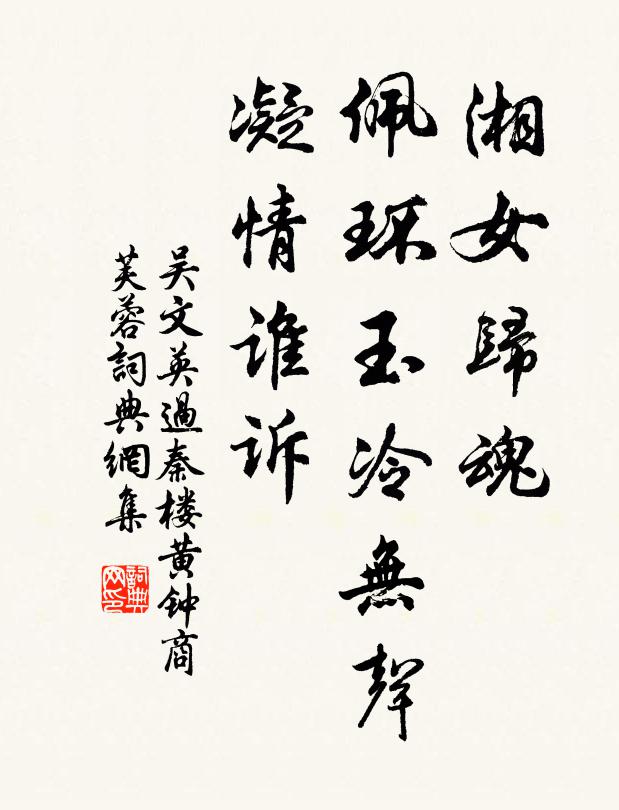 湘女歸魂
佩环玉冷無聲
凝情谁诉
吴文英過秦楼黄钟商
芙蓉詞典網集
詞典网印